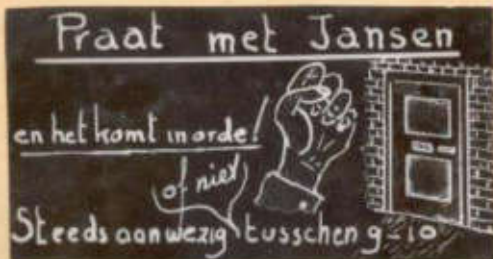 Praat met Jansen
en het komt in orde!
of niet
Steeds aanwezig tusschen 9-10